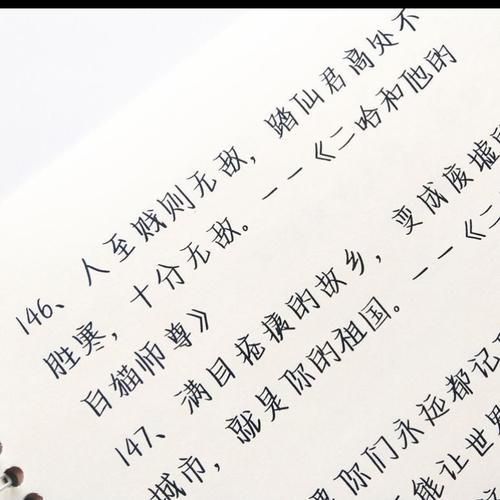 146、人至贱则无敌，踏仙君高处不
胜寒，十分无敌。——《二哈和他的
白猫师尊》
147、满目苍痍的故乡，变成废墟的
城市，就是你的祖国。——《二
你们永远都记
能让世界